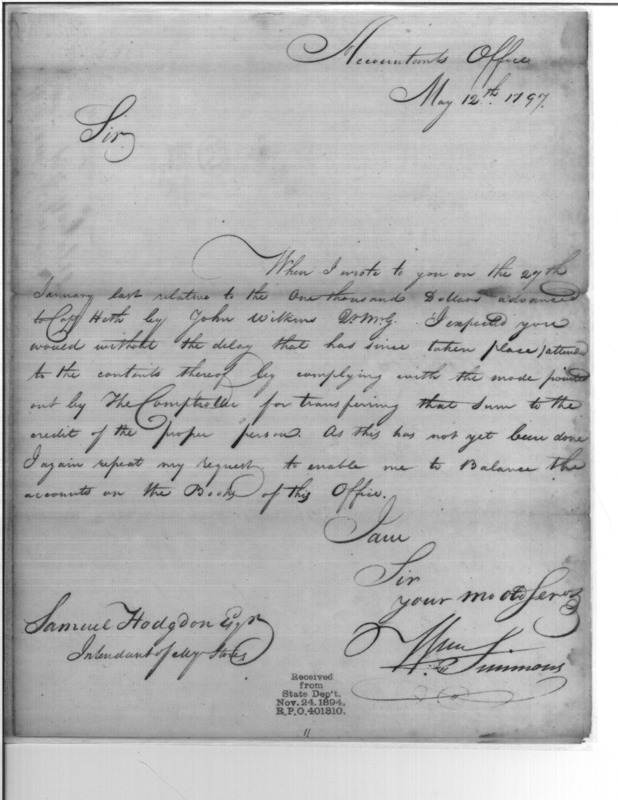 Accountants Office
May 12th. 1797.
Sir
When I wrote to you on the 27th
January last relative to the One thousand Dollars advanced
to Cap Heth by John Wilkins QrMrG. I expected you
would without the delay that has since taken place, attend
to the contents thereof by complying with the mode pointed
out by The Comptroller for transferring that Sum to the
credit of the proper person. As this has not yet been done
I again repeat my request, to enable me to Balance the
accounts on the Books of this Office.
I am
Sir
your mo obt Servt
Wm Simmons
Samuel Hodgdon Esqr
Intendant of My Stores
Received
from
State Dep't.
Nov. 24. 1894.
R.P.O. 401810.
11